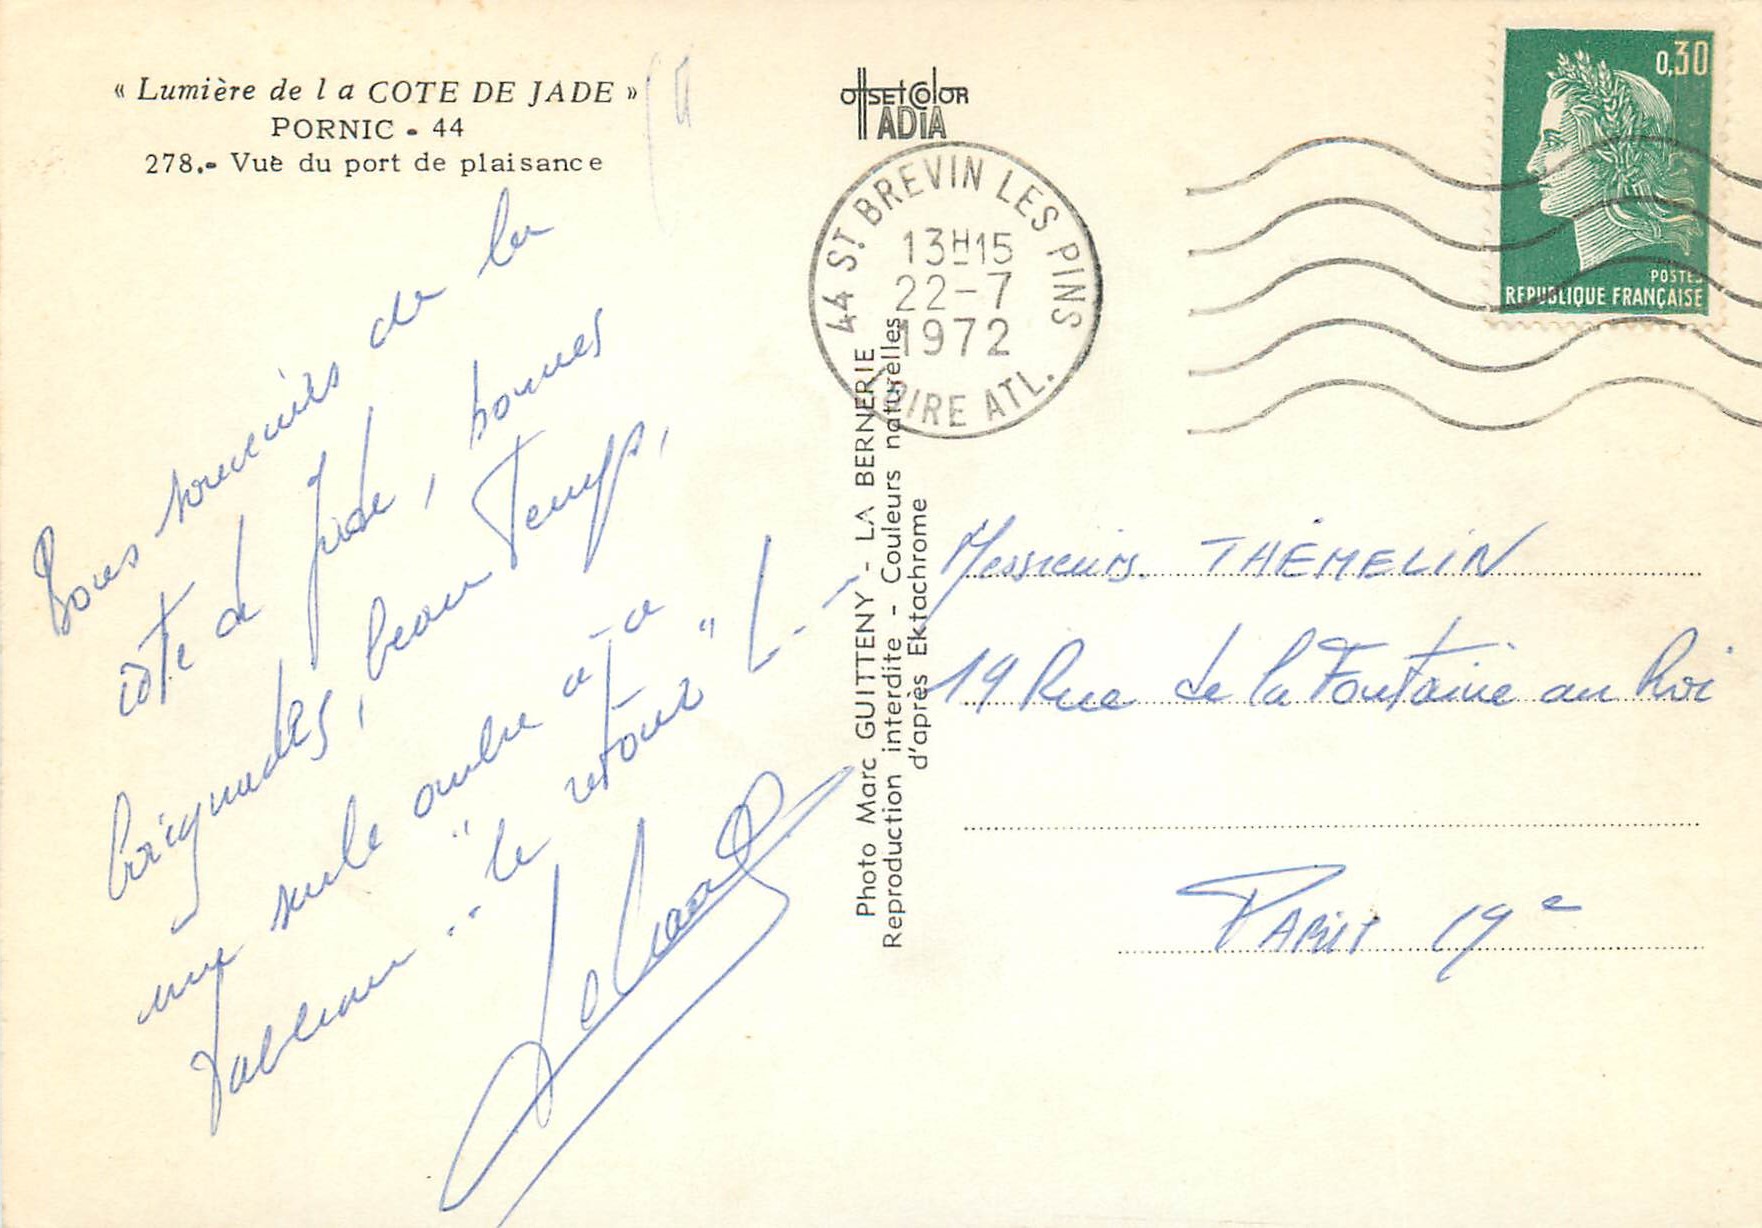 « Lumière de la COTE DE JADE »
PORNIC - 44
278.- Vue du port de plaisance
Bons souvenirs de la
côte de Jade, bonnes
baignades, beau temps,
une seule ombre a-a
tableau... "le retour" !...
OffSET COlOR
ADIA
Photo Marc GUITTENY - LA BERNERIE
Reproduction interdite - Couleurs naturelles
d'après Ektachrome
44 ST BREVIN LES PINS
13H15
22-7
1972
LOIRE ATL.
0,30
POSTES
REPUBLIQUE FRANÇAISE
Messieurs. THÉMELIN
19 Rue de la Fontaine au Roi
PARIS 19e